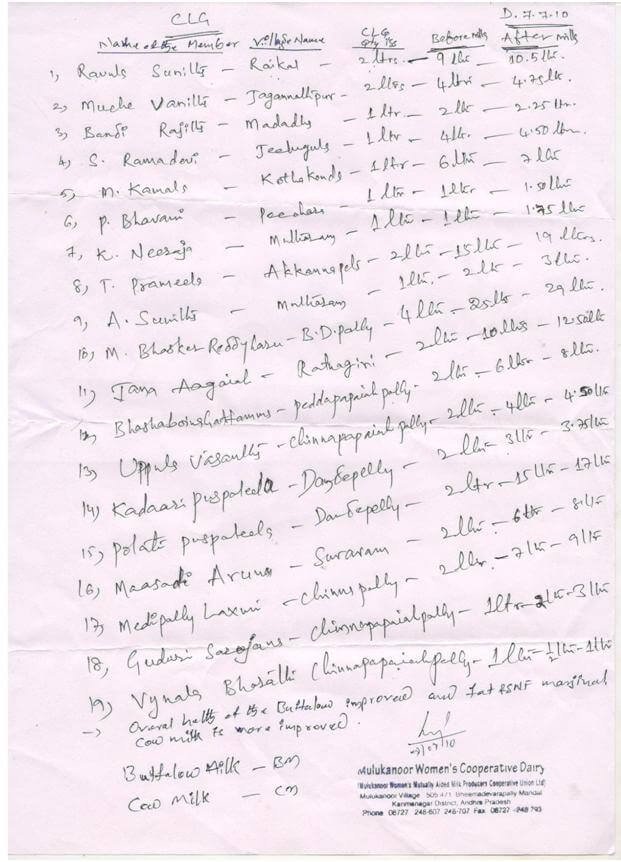 CLG
D. 7.7.10
Name of the Member Village Name CLG Qty Iss Before milk After milk
1) Ravula Sunitha - Raikal - 2 ltrs. - 9 ltr - 10.5 ltr.
2) Muche Vanitha - Jagannathpur - 2 ltrs - 4 ltr - 4.75 ltr.
3) Bandi Rajitha - Madadha - 1 ltr - 2 ltr - 2.25 ltr.
4) S. Ramadevi - Jeeluguls - 1 ltr - 4 ltr. - 4.50 ltr.
5) M. Kamala - Kothakonda - 1 ltr - 6 ltr - 7 ltr
6) P. Bhavani - - 1 ltr - 1 ltr - 1.50 ltr
7) K. Neeraja - Mutharam - 1 ltr - 1 ltr - 1.75 ltr
8) T. Prameela - Akkannapela - 2 ltr - 15 ltr - 19 ltrs.
9) A. Sunitha - Mutharam - 1 ltr. - 2 ltr - 3 ltr.
10) M. Bhasker Reddy - B.D. pally - 4 ltr - 25 ltr - 29 ltr.
11) Jana Aagaiah - Rathagiri - 2 ltr - 10 ltrs - 12.50 ltr
12) - peddapapaiah pally - 2 ltr - 6 ltr - 8 ltr.
13) Uppula Vasantha - Chinnapapaiah pally - 2 ltr - 4 ltr - 4.50 ltr
14) Kadaari puspaleela - Dandepelly - 2 ltr - 3 ltr - 3.75 ltr
15) Polati puspaleela - Dandepelly - 2 ltr - 15 ltr - 17 ltr
16) Maasadi Aruna - Suraram - 2 ltr - 6 ltr - 8 ltr
17) Medipally Laxmi - Chinnapally - 2 ltr. - 7 ltr - 9 ltr
18) Guduri Sarojana - Chinnapapaiahpally - 1 ltr - 2 ltr - 3 ltr
19) Vynala Chinnapapaiahpally - 1 ltr - 1/2 ltr - 1 ltr
-> Overal helth of the Buffalow improved and Fat & SNF marginal
Cow milk is more improved.
Buffalow Milk - BM
Cow Milk - CM
07/07/10
Mulukanoor Women's Cooperative Dairy
(Mulukanoor Women's Mutually Aided Milk Producers Cooperative Union Ltd)
Mulukanoor Village 505 471 Bheemadevarapally Mandal
Karimanagar District, Andhra Pradesh
Phone 08727 248-607 248-707 Fax 08727 -248 793